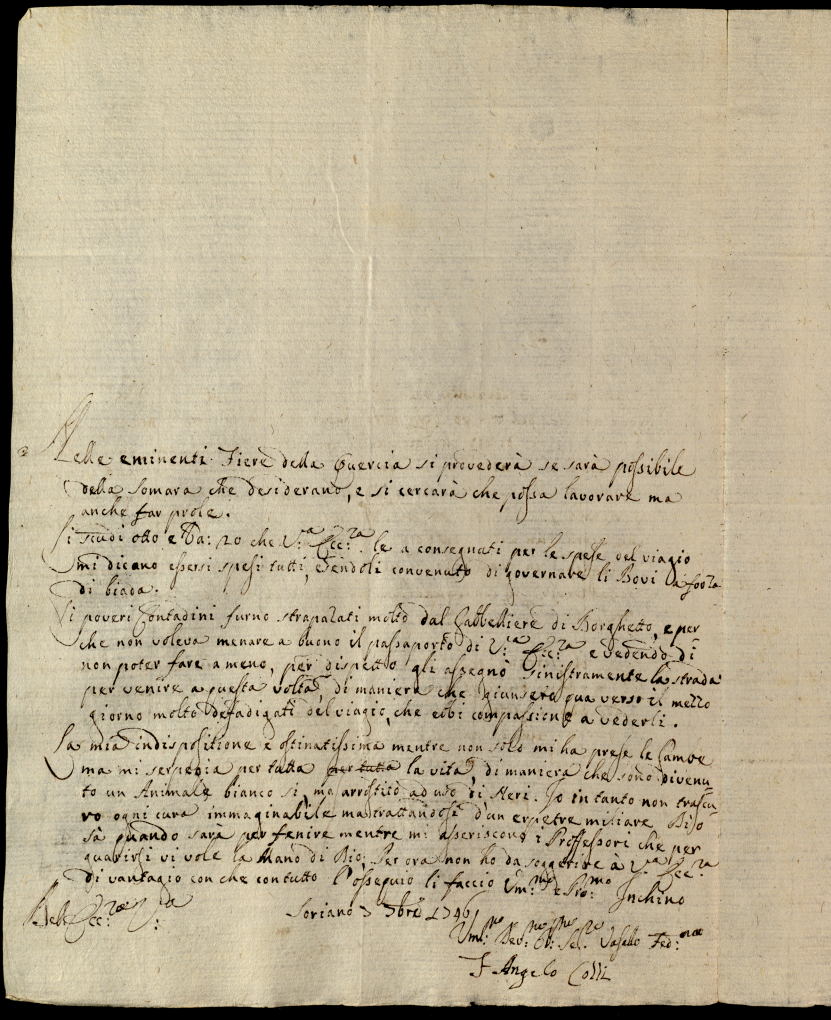 Nelle eminenti Fiere della Quercia si provederà se sarà possibile
della somara che desiderano, e si cercarà che possa lavorare ma
anche far prole.
Li scudi otto e Ba: 20 che V.ª Ecc:za le a consegnati per le spese del viagio
mi dicano essersi spesi tutti, essendoli convenuto di governare li Bovi a forza
di biada.
Li poveri Contadini furno strapazati molto dal Gabbelliere di Borghetto, e per
che non voleva menare a buono il passaporto di V:ra Ecc:za e vedendo di
non poter fare a meno, per dispetto gli assegnò sinistramente la strada
per venire a questa volta, di maniera che giunsero qua verso il mezzo
giorno molto defadigati del viagio, che ebbi compassione a vederli.
La mia indispositione è ostinatissima mentre non solo mi ha prese le Gambe
ma mi serpegia per tutta per tutta la vita, di maniera che sono divenu
to un Animale bianco si, ma arrostito ad uso di Neri. Io in tanto non trascu
ro ogni cura immaginabile ma trattandosi d'un erpetre miliare Dio
sà quando sarà per fenire mentre mi asseriscono i Proffessori che per
guarirsi vi vole la Mano di Dio. Per ora non ho da soggerire à V:ra Ecc:za
di vantagio con che con tutto l'ossequio li faccio Um:mo e Pro:mo Inchino
Dell' Ecc:za V:ra
Soriano 3 7bre 1746
Uml:mo Dev:mo Ob:mo Se:re Vasallo Fed:mo
F Angelo Colli